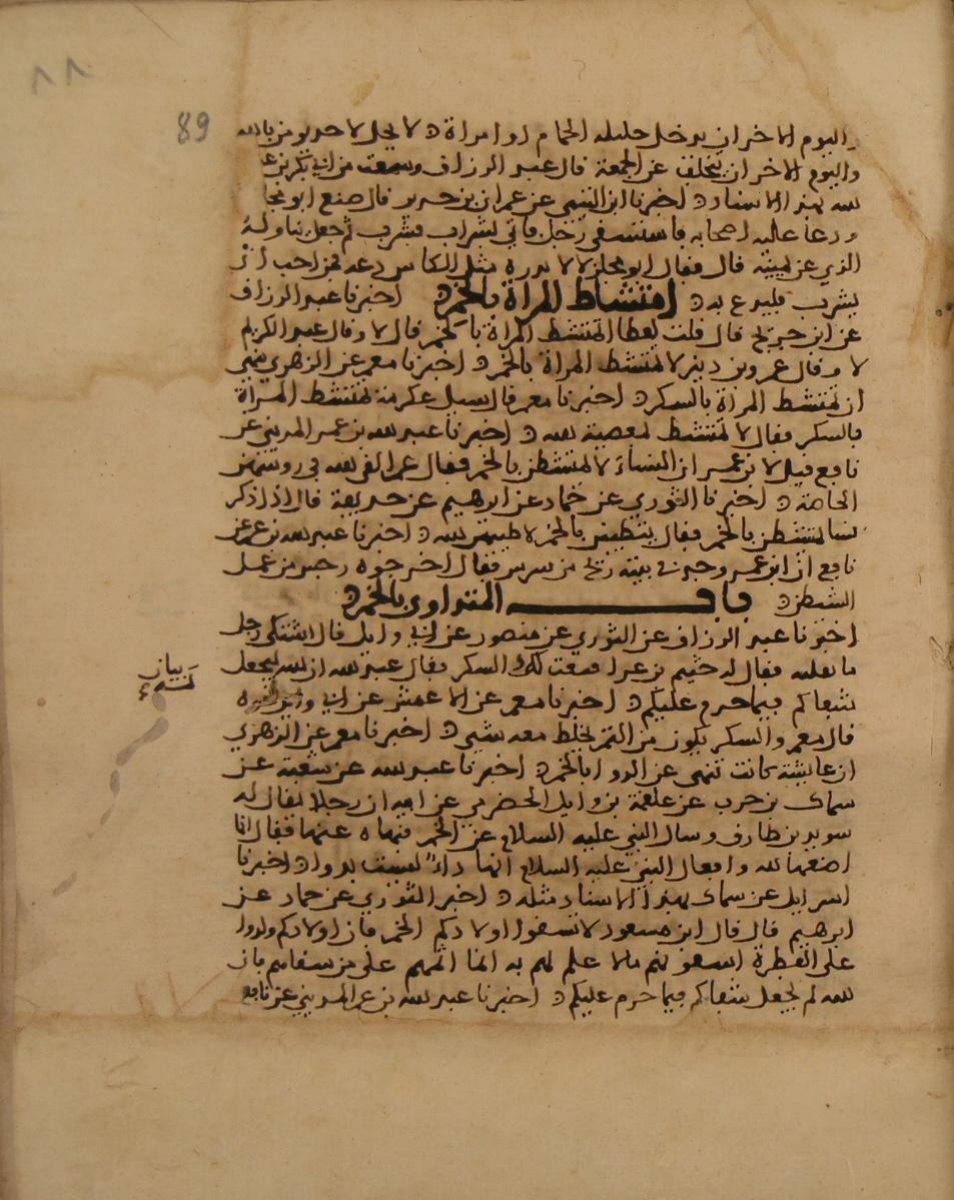 ٨٨
89
واليوم الاخر ان يدخل حليلته الحمام او امراة ه لا يحل لاحد يومن بالله
واليوم الاخر ان يتخلف عن الجمعة قال عبد الرزاق وسمعت من ابي بكر بن
لله بهذا الاسناد ه اخبرنا ابن التيمي عن عمران بن حدير قال صنع ابو مجلز
ودعا عليه اصحابه فاستسقى رجل فاتي بشراب فشرب ثم جعل يناوله
الذي عن يمينه قال فقال ابو مجلز لا لا يدره مثل الكاس دعه فمن احب ان
يشرب فليدع به ه امتشاط المراة بالخمر ه اخبرنا عبد الرزاق
عن ابن جريج قال قلت لعطا اتمتشط المراة بالخمر قال لا وقال عبد الكريم
لا وقال عمرو بن دينر لا تمتشط المراة بالخمر ه اخبرنا معمر عن الزهري نهي
ان تمتشط المراة بالسكر ه اخبرنا معمر قال سيل عكرمة تمتشط المراة
بالسكر فقال لا تمتشط لمعصية لله ه اخبرنا عبد لله بن عمر المديني عن
نافع قيل لابن عمر ان النساء لا متشطن بالخمر فقال عمر القى لله في روسهن
الحاصة ه اخبرنا الثوري عن حماد عن ابرهيم عن حذيفة قال اذا ذكر
نسا يمتشطن بالخمر فقال يتطيبن بالخمر لا طيبهن لله ه اخبرنا عبد لله بن عمر عن
نافع ان ابن عمر وجد في بيته ريح من سرير فقال اخرجوه رجس من عمل
الشيطن ه باب المتداوي بالخمر ه
اخبرنا عبد الرزاق عن الثوري عن منصور عن ابي وايل قال اشتكى رجل
ما بطنه فقال له خثيم بن عدا فنعت لك السكر فقال عبد لله ان لله لم يجعل
شفاكم فيما حرم عليكم ه اخبرنا معمر عن الاعمش عن ابي وايل
قال معمر والسكر يكون من التمر يخلط معه شيء ه اخبرنا معمر عن الزهري
ان عايشة كانت تنهى عن الدوا بالخمر ه اخبرنا عبد لله عن شعبة عن
سماك بن حرب عن علقمة بن وايل الحضرمي عن ابيه ان رجلا يقال له
سويد بن طارق وسال النبي عليه السلام عن الخمر فنهاه عنها فقال انا
اصنعها للدوا فقال النبي عليه السلام انها داء ليست بدوا ه اخبرنا
اسرايل عن سماك بهذا الاسناد مثله ه اخبر الثوري عن حماد عن
ابرهيم قال قال ابن مسعود لا تسقوا اولادكم الخمر فان اولادكم ولدوا
على الفطرة اتسقونهم مالا علم لهم به انما اثمهم على من سقاهم فان
لله لم يجعل شفاكم فيما حرم عليكم ه اخبرنا عبد لله بن عمر المديني عن نافع
بيان